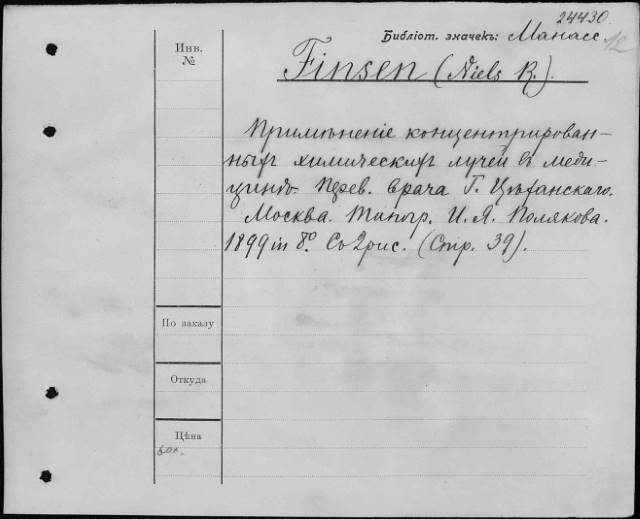 24430.
Библіот. значекъ: Манасе
12
Инв.
№
Finsen (Niels R.).
Примѣненіе концентрирован-
ныхъ химическихъ лучей въ меди-
цинѣ. Перев. врача Г. Цѣханскаго.
Москва. Типогр. И. Я. Полякова.
1899 in 8º. Съ 2 рис. (Стр. 39).
По заказу
Откуда
Цѣна
60 к.